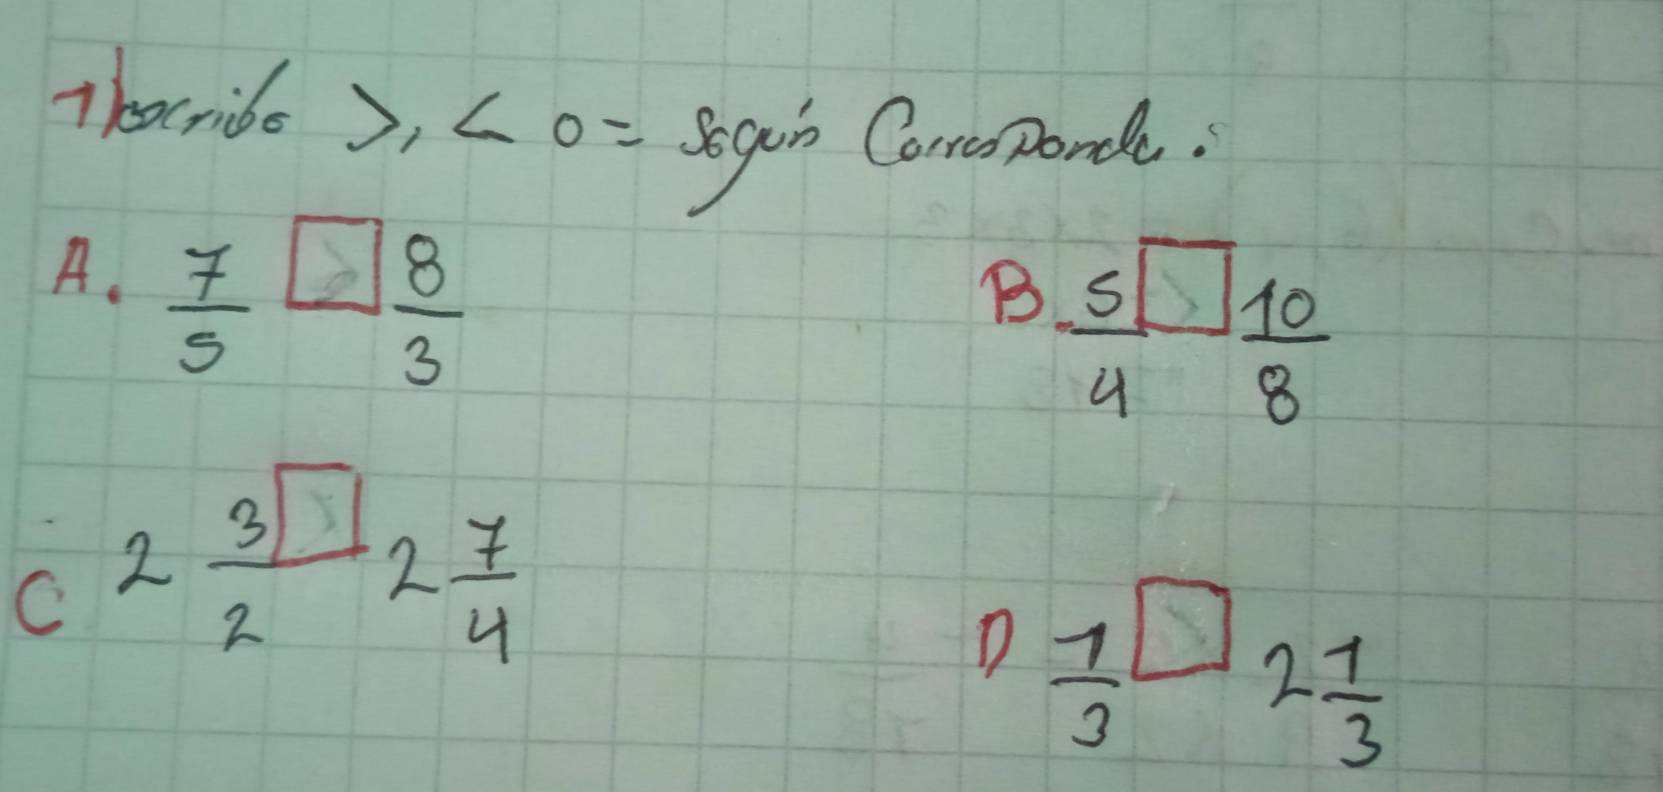 1) escribe >, < o = según Corresponda:
A. 7/5 □ 8/3
B. 5/4 □ 10/8
C 2 3/2 □ 2 7/4
D 1/3 □ 2 1/3